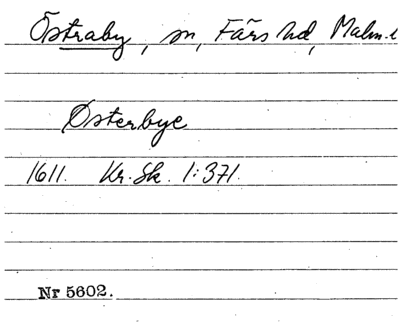 Östraby, sn, Färs hd, Malm. l
Østerbye
1611. Kr. Sk. 1:371.
Nr 5602.